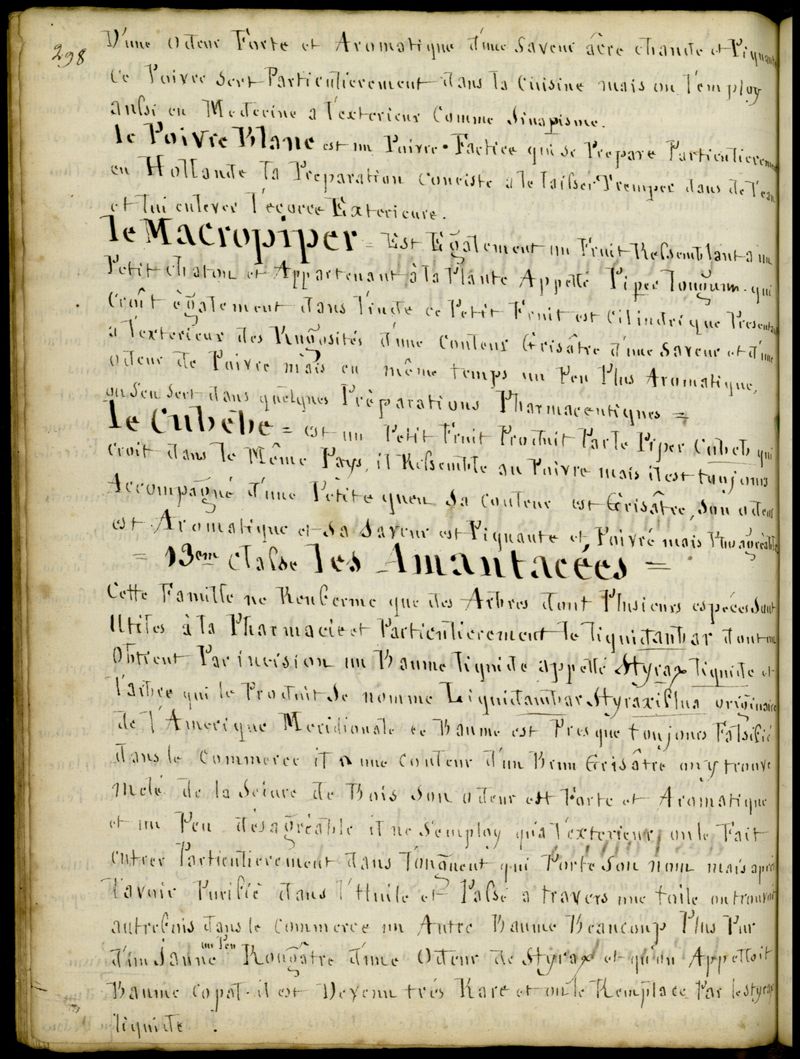 298
D'une odeur Forte et Aromatique d'une Saveur âcre chaude et Piquante
Ce Poivre Sert Particulierement dans la Cuisine mais on l'emploÿ
aussi en Medecine a l'exterieur Comme Sinapisme.
le Poivre Blanc est un Poivre Factice qui se Prepare Particulierement
en Hollande la Preparation Consiste a le laisser Tremper dans de l'eau
et lui enlever l'ecorce Exterieure.
le Macropiper = Est Également un Fruit Ressemblant a un
Petit chaton et Appartenant à la Plante Appellé Piper longum qui
Croît également dans l'inde ce Petit Fruit est Cilindrique Presentant
a l'exterieur des Rugosités d'une Couleur Grisâtre d'une Saveur et d'une
odeur de Poivre mais en même temps un Peu Plus Aromatique,
on s'en sert dans quelques Prèparations Pharmaceutiques =
le Cubèbe = est un Petit Fruit Produit Par le Piper Cubeb qui
croit dans le Même Pays, il Ressemble au Poivre mais il est toujours
Accompagné d'une Pétite queu Sa Couleur est Grisâtre, Son odeur
est Aromatique et Sa Saveur est Piquante et Poivré mais Plus agreable
= 13em Classe les Amantacées =
Cette Famille ne Renferme que des Arbres dont Plusieurs espéces Sont
Utiles à la Pharmacie et Particulierement le liquidambar dont on
Obtient Par incision un Baume liquide appellé Styrax liquide et
l'arbre qui le Produit Se nomme Liquidambar Styraxiflua originaire
de l'Amerique Meridionale ce Baume est Presque toujours Falsifié
dans le Commerce il a une Couleur d'un Brun Grisâtre on y trouve
Melé de la Sciure de Bois Son odeur est Forte et Aromatique
et un Peu désagréable il ne S'emploÿ qu'a l'exterieur, on le Fait
entrer Particulierement dans l'onguent qui Porte Son nom mais aprés
l'avoir Purifié dans l'Huile et Passé a travers une toile on trouvoit
autrefois dans le Commerce un Autre Baume Beaucoup Plus Pur
d'un Jaune un Peu Rougâtre d'une Odeur de Styrax et qu'on Appelloit
Baume Copal. il est Devenu trés Rare et on le Remplace Par le styrax
liquide.